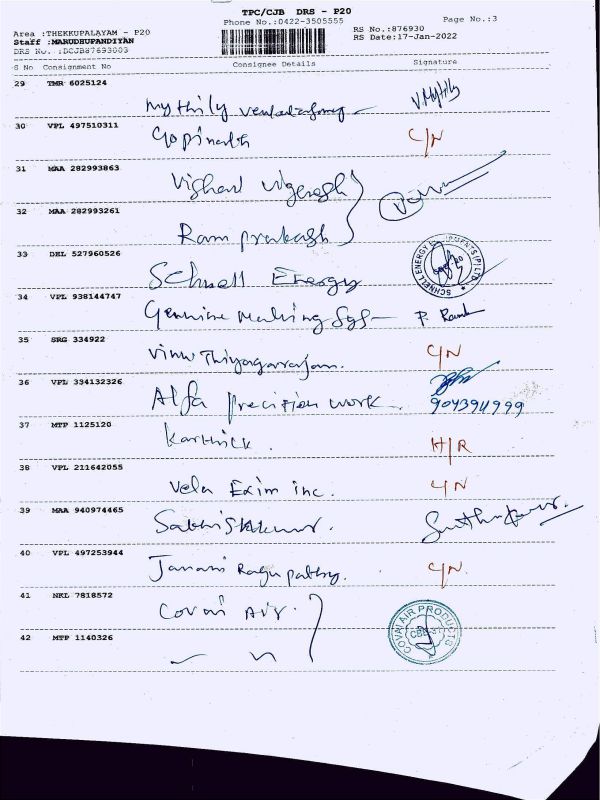 TPC/CJB DRS - P20
Phone No.:0422-3505555
Page No.:3
Area :THEKKUPALAYAM - P20
RS No.:876930
Staff :MARUDHUPANDIYAN
RS Date:17-Jan-2022
DRS No. :DCJB87693003
S No Consignment No Consignee Details Signature
29 TMR 6025124
Mythily V.Mythily
30 VPL 497510311
Gopinath C/N
31 MAA 282993863
Vishal
32 MAA 282993261
Ram prakash
33 DEL 527960526
Schnell Energy
SCHNELL ENERGY EQUIPMENTS (P) LTD
34 VPL 938144747
Genuine Making P. Ramk
35 SRG 334922
Vinu Thiyagarajan. C/N
36 VPL 334132326
Alfa precision work 9043911999
37 MTP 1125120
Karthick. H/R
38 VPL 211642055
Vela Exim inc. C/N
39 MAA 940974465
40 VPL 497253944
Janani Ragupathy. C/N
41 NKL 7818572
Covai Air.
COVAI AIR PRODUCTS
42 MTP 1140326